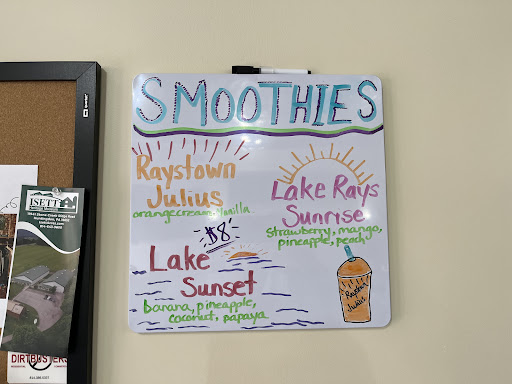 SMOOTHIES
Raystown
Julius
orange cream, vanilla
Lake Rays
Sunrise
strawberry, mango,
pineapple, peach
$8
Lake
Sunset
banana, pineapple,
coconut, papaya
Raystown
Julius
ISETT
DIRTBUSTERS